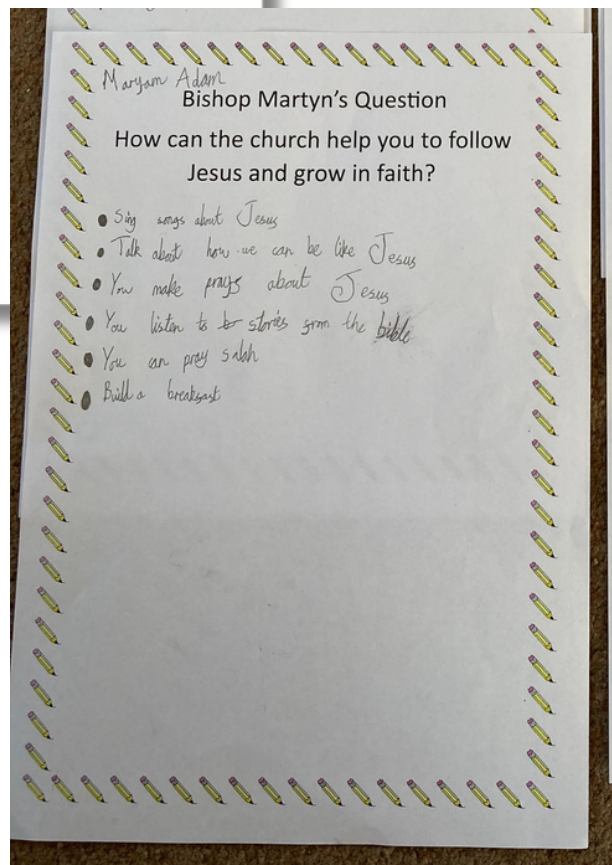 Maryam Adam
Bishop Martyn's Question
How can the church help you to follow
Jesus and grow in faith?
● Sing songs about Jesus
● Talk about how we can be like Jesus
● You make prays about Jesus
● You listen to stories from the bible
● You can pray salah
● Build a breakfast